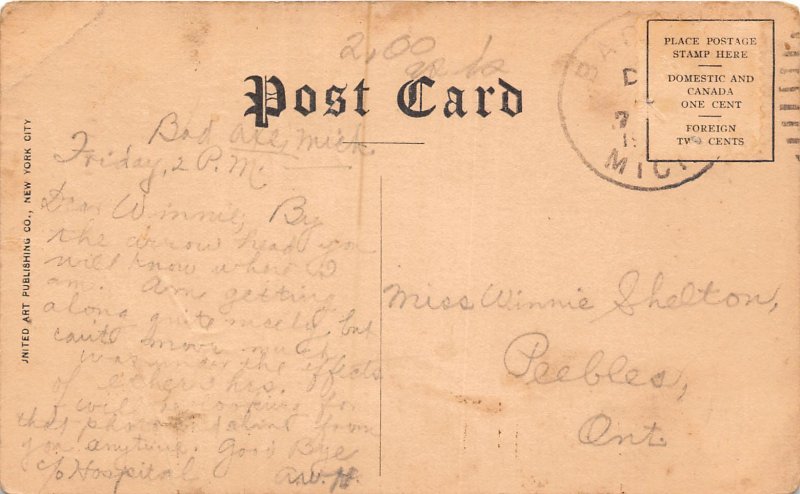 2.00
Post Card
PLACE POSTAGE
STAMP HERE
DOMESTIC AND
CANADA
ONE CENT
FOREIGN
TWO CENTS
BAD
D
MICH
UNITED ART PUBLISHING CO., NEW YORK CITY
Bad Axe, Mich.
Friday, 2 P.M.
Dear Winnie, By
the arrow head you
will know where I
am. Am getting
along quite nicely, but
can't move much
was under the effects
of ether hrs.
I will be looking for
that from
you anytime. Good Bye
c/o Hospital A.W.H.
Miss Winnie Shelton,
Peebles,
Ont.